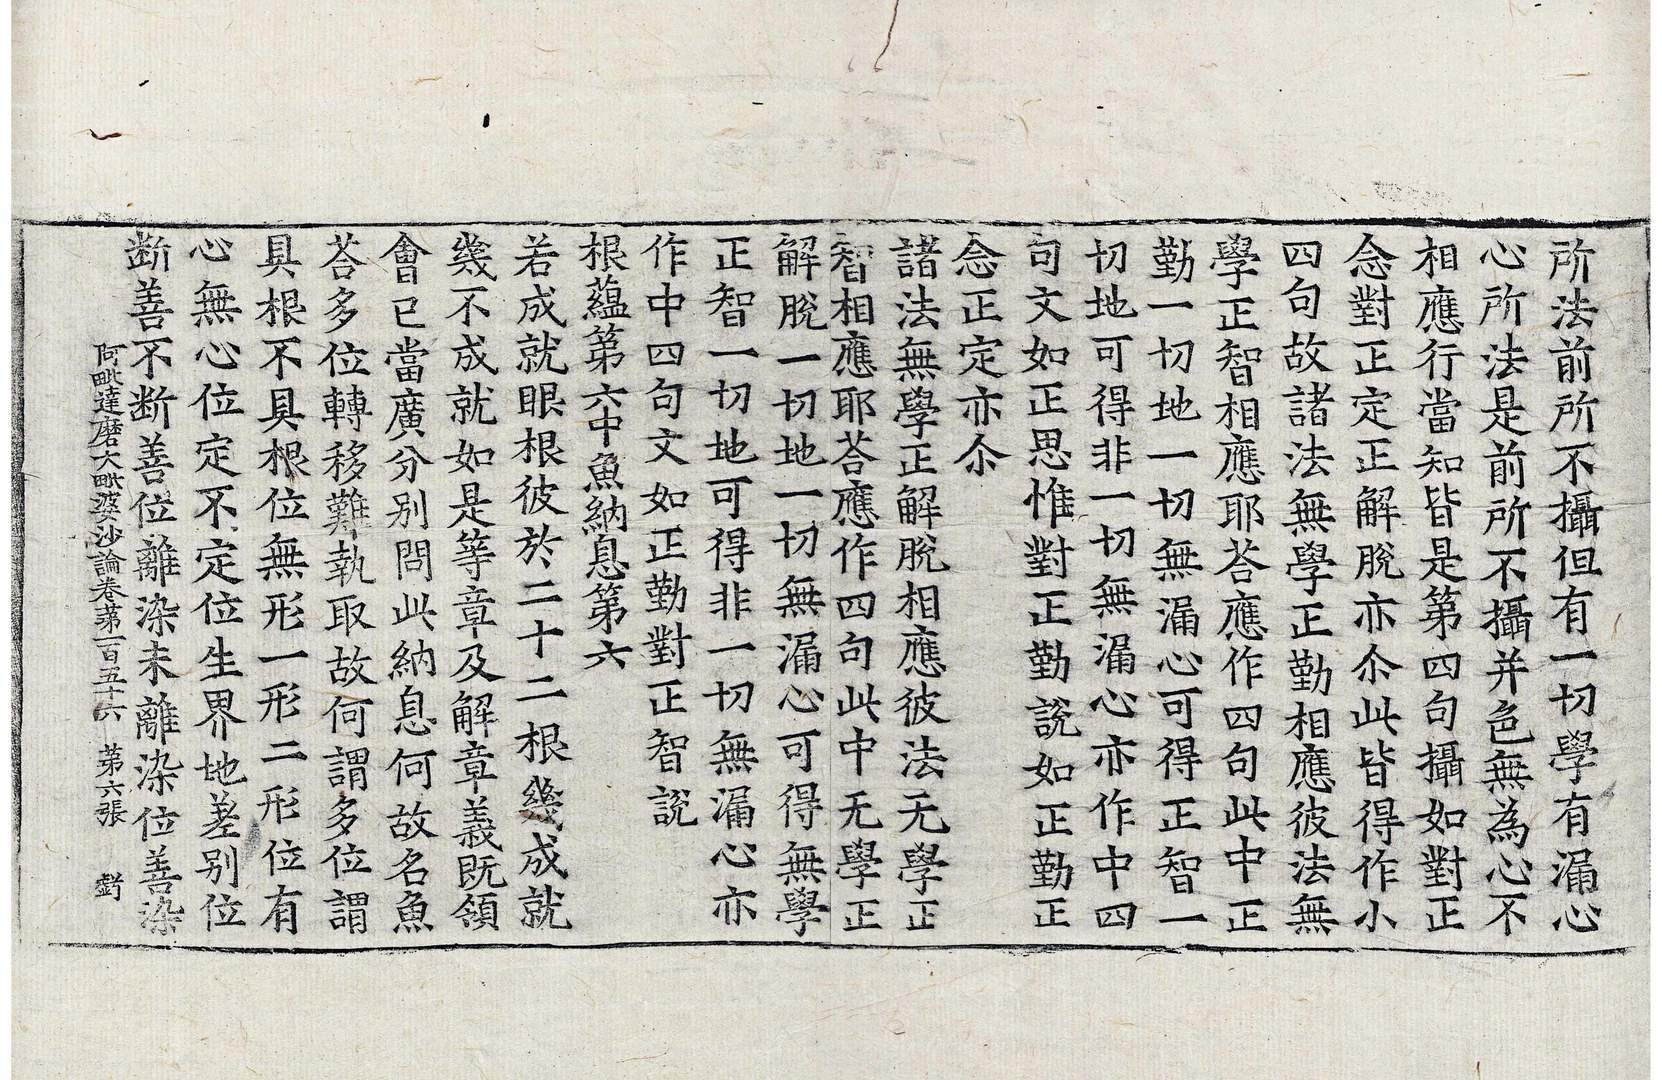 所法前所不攝但有一切學有漏心
心所法是前所不攝并色無為心不
相應行當知皆是第四句攝如對正
念對正定正解脫亦尒此皆得作小
四句故諸法無學正勤相應彼法無
學正智相應耶荅應作四句此中正
勤一切地一切無漏心可得正智一
切地可得非一切無漏心亦作中四
句文如正思惟對正勤說如正勤正
念正定亦尒
諸法無學正解脫相應彼法无學正
智相應耶荅應作四句此中无學正
解脫一切地一切無漏心可得無學
正智一切地可得非一切無漏心亦
作中四句文如正勤對正智說
根蘊第六中魚納息第六
若成就眼根彼於二十二根幾成就
幾不成就如是等章及解章義既領
會已當廣分別問此納息何故名魚
荅多位轉移難執取故何謂多位謂
具根不具根位無形一形二形位有
心無心位定不定位生界地差別位
断善不断善位離染未離染位善染
阿毗達磨大毗婆沙論卷苐一百五十六 第六張